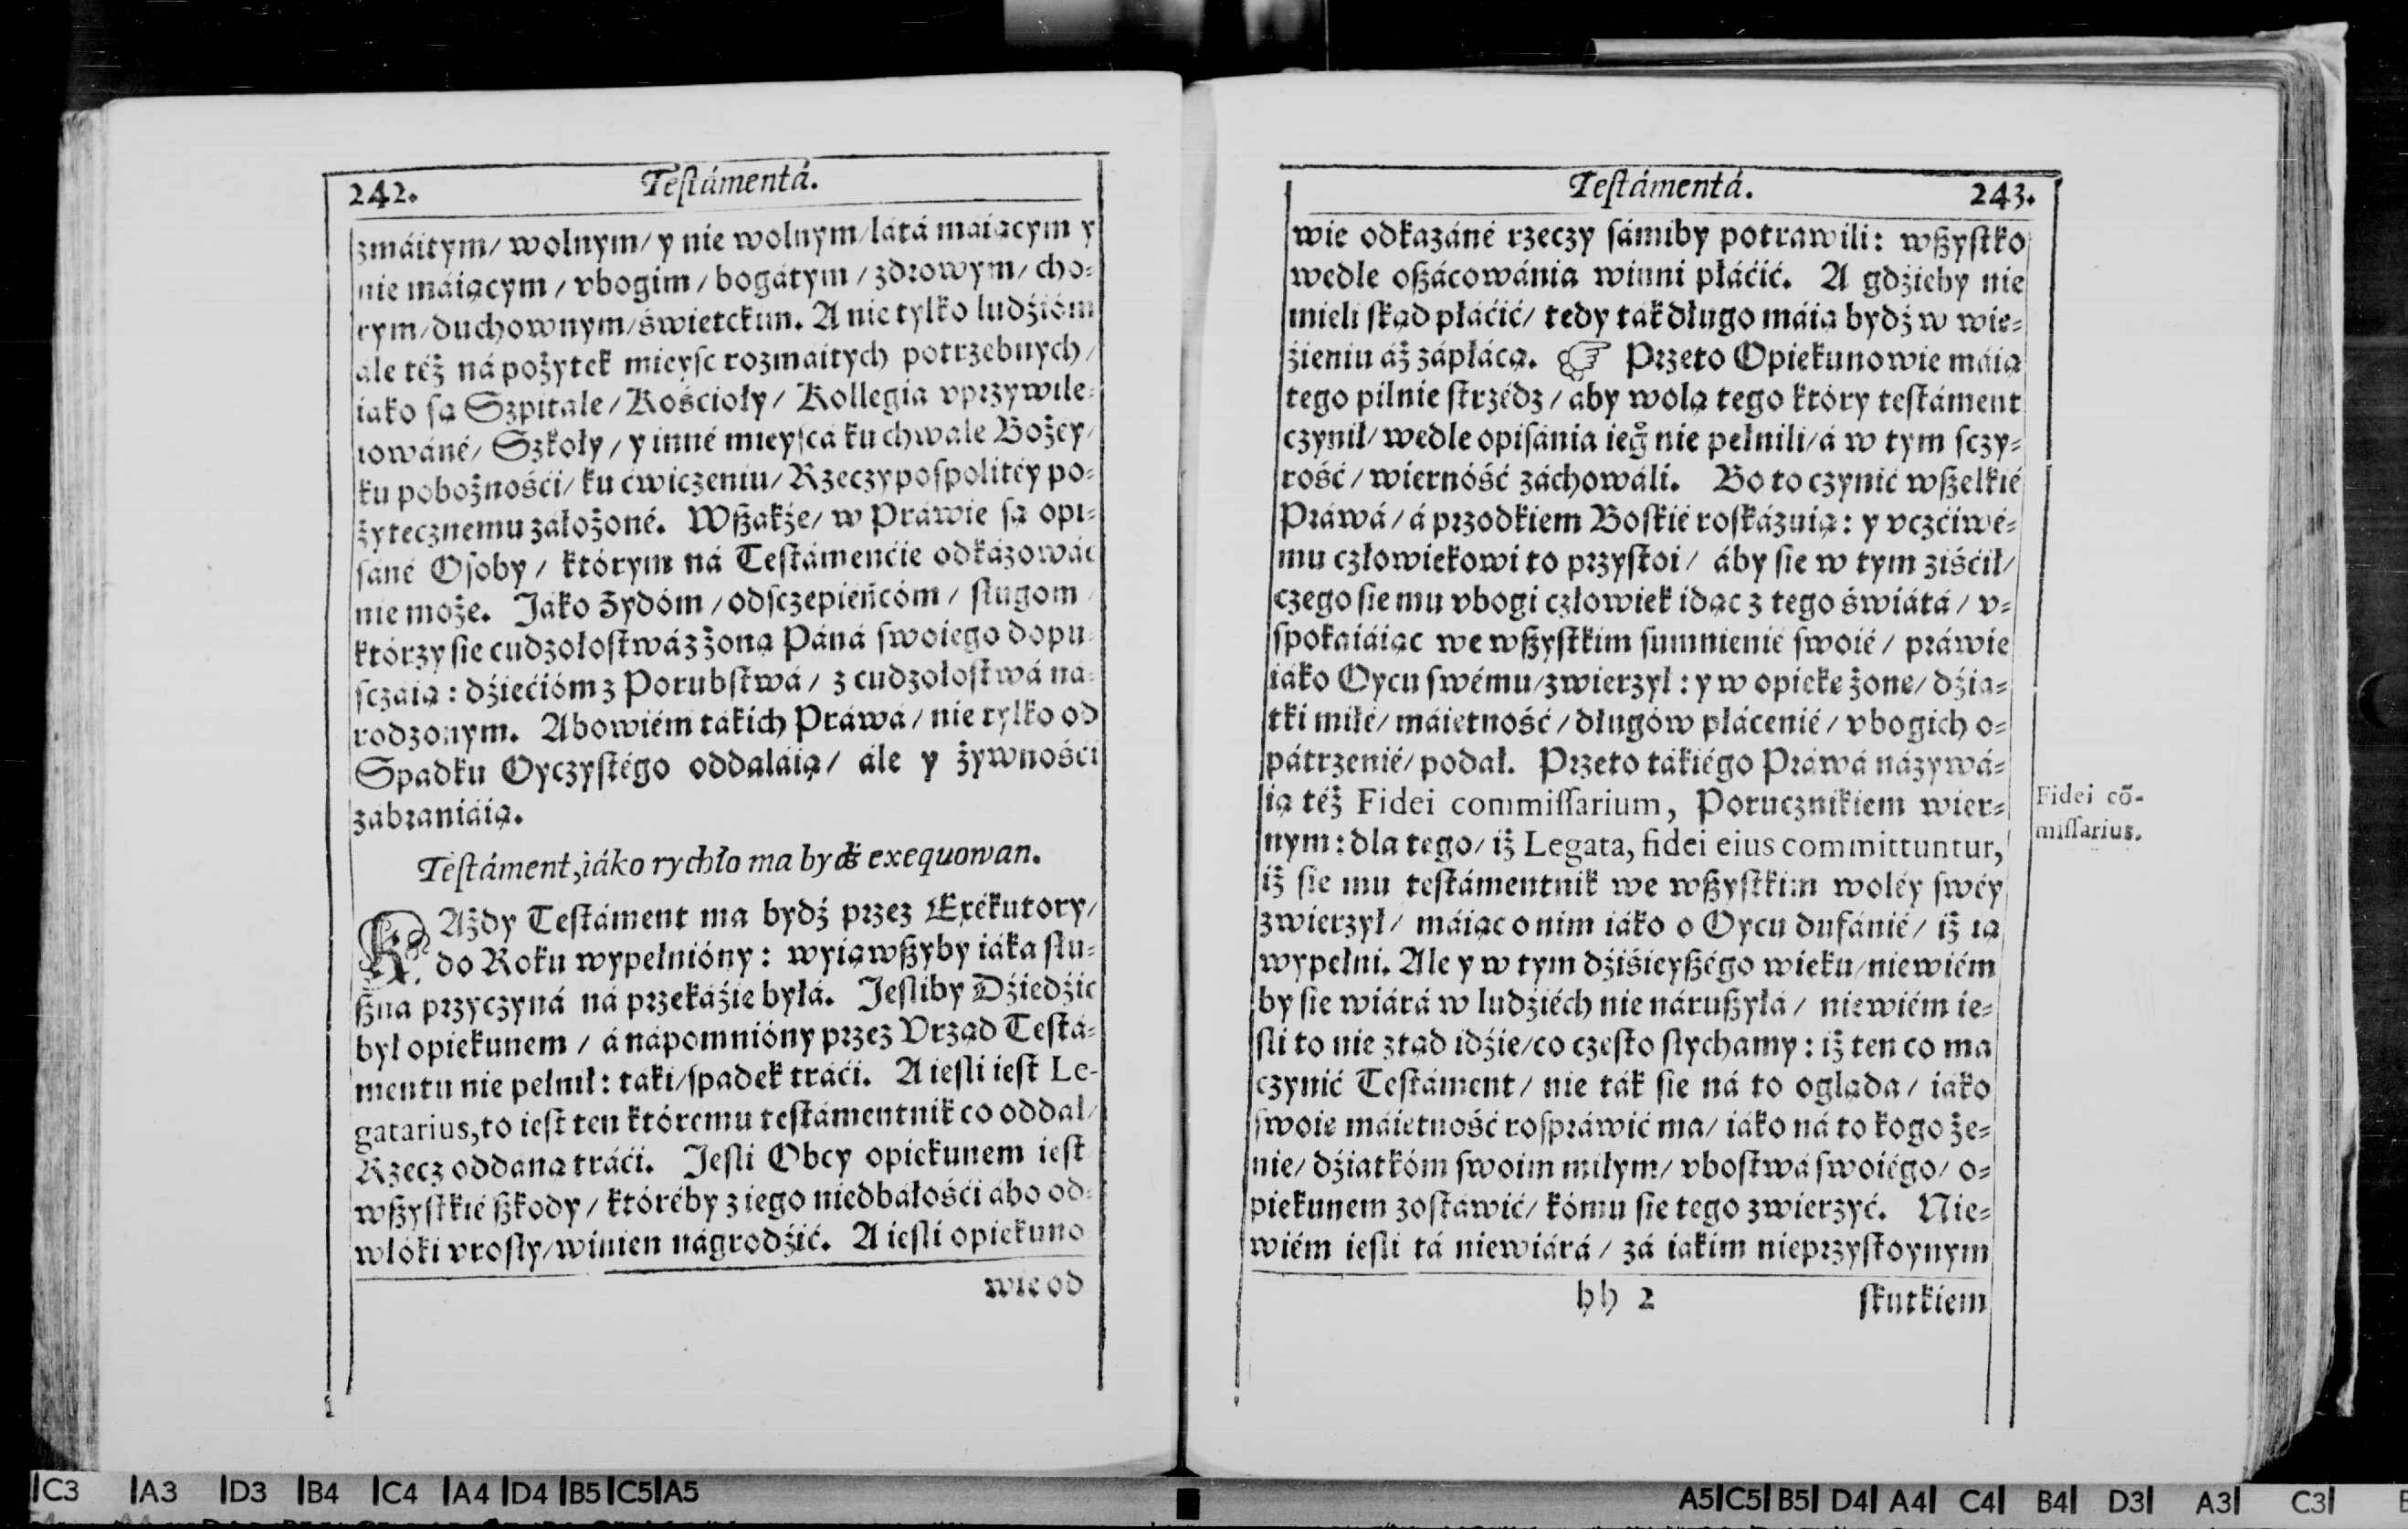 242. Teſtámentá.
zmáitym/ wolnym/ y nie wolnym/ látá máiącym y
nie máiącym / vbogim / bogátym / zdrowym / cho-
rym/ duchownym/ świetckim. A nie tylko ludźióm
ale też ná pożytek mieyſc rozmáitych potrzebnych/
iáko ſą Szpitale/ Kośćioły/ Kollegia vprzywile-
iowáné/ Szkoły/ y inné mieyſcá ku chwale Bożéy/
ku pobożnośći/ ku ćwiczeniu/ Rzeczypoſpolitéy po-
żytecznemu záłożoné. Wßákże/ w Práwie ſą opi-
ſáné Oſoby / którym ná Teſtámenćie odkázowáć
nie może. Jáko Żydóm / odſczepieńcóm / ſługom /
którzy ſie cudzołoſtwá z żoną Páná ſwoiego dopu-
ſczáią : dźiećióm z Porubſtwá / z cudzołoſtwá ná-
rodzonym. Abowiém tákich Práwá / nie tylko od
Spadku Oyczyſtégo oddaláią/ ále y żywnośći
zábraniáią.
Teſtáment, iáko rychło ma bydź exequowan.
KAżdy Teſtáment ma bydź przez Exékutory/
do Roku wypełnióny : wyiąwßyby iáka ſłu-
ßna przyczyná ná przekáźie byłá. Jeſliby Dźiedźic
był opiekunem / á nápomnióny przez Vrząd Teſtá-
mentu nie pełnił : táki/ ſpadek tráći. A ieſli ieſt Le-
gatarius, to ieſt ten któremu teſtámentnik co oddał/
Rzecz oddáną tráći. Jeſli Obcy opiekunem ieſt
wßyſtkié ßkody / któréby z iego niedbáłośći ábo od-
włóki vroſły/ winien nágrodźić. A ieſli opiekuno
wie od
Teſtámentá. 243.
wie odkazáné rzeczy ſámiby potrawili : wßyſtko
wedle oßácowánia winni płáćić. A gdźieby nie
mieli ſkąd płáćić/ tedy ták długo máią bydź w wie-
źieniu áż zápłácą. ☞ Przeto Opiekunowie máią
tego pilnie ſtrzédz / aby wolą tego który teſtáment
czynił/ wedle opiſánia ieg° nie pełnili/ á w tym ſczy-
rość / wiernóść záchowáli. Bo to czynić wßelkié
Práwá / á przodkiem Boſkié roſkázuią : y vczćiwé-
mu człowiekowi to przyſtoi / áby ſie w tym ziśćił/
czego ſie mu vbogi człowiek idąc z tego świátá / v-
ſpokaiáiąc we wßyſtkim ſumnienié ſwoié / práwie
iáko Oycu ſwému/ zwierzył : y w opieke żone/ dźia-
tki miłé/ máietność / długów płácenié / vbogich o-
pátrzenié/ podał. Przeto tákiégo Práwá názywá-
ią też Fidei commiſſarium, Porucznikiem wier-
nym : dla tego/ iż Legata, fidei eius committuntur,
iż ſie mu teſtámentnik we wßyſtkim woléy ſwéy
zwierzył / máiąc o nim iáko o Oycu dufánié / iż ią
wypełni. Ale y w tym dźiśieyßégo wieku/ niewiém
by ſie wiárá w ludźiéch nie nárußyłá / niewiém ie-
ſli to nie ztąd idźie/ co czeſto ſłychamy : iż ten co ma
czynić Teſtáment / nie ták ſie ná to ogląda / iáko
ſwoie máietność roſpráwić ma/ iáko ná to kogo że-
nie/ dźiatkóm ſwoim miłym/ vboſtwá ſwoiégo/ o-
piekunem zoſtáwić/ kómu ſie tego zwierzyć. Nie-
wiém ieſli tá niewiárá / zá iákim nieprzyſtoynym
hh 2 ſkutkiem
Fidei cō-
miſſarius.
C3 A3 D3 B4 C4 A4 D4 B5 C5 A5
A5 C5 B5 D4 A4 C4 B4 D3 A3 C3